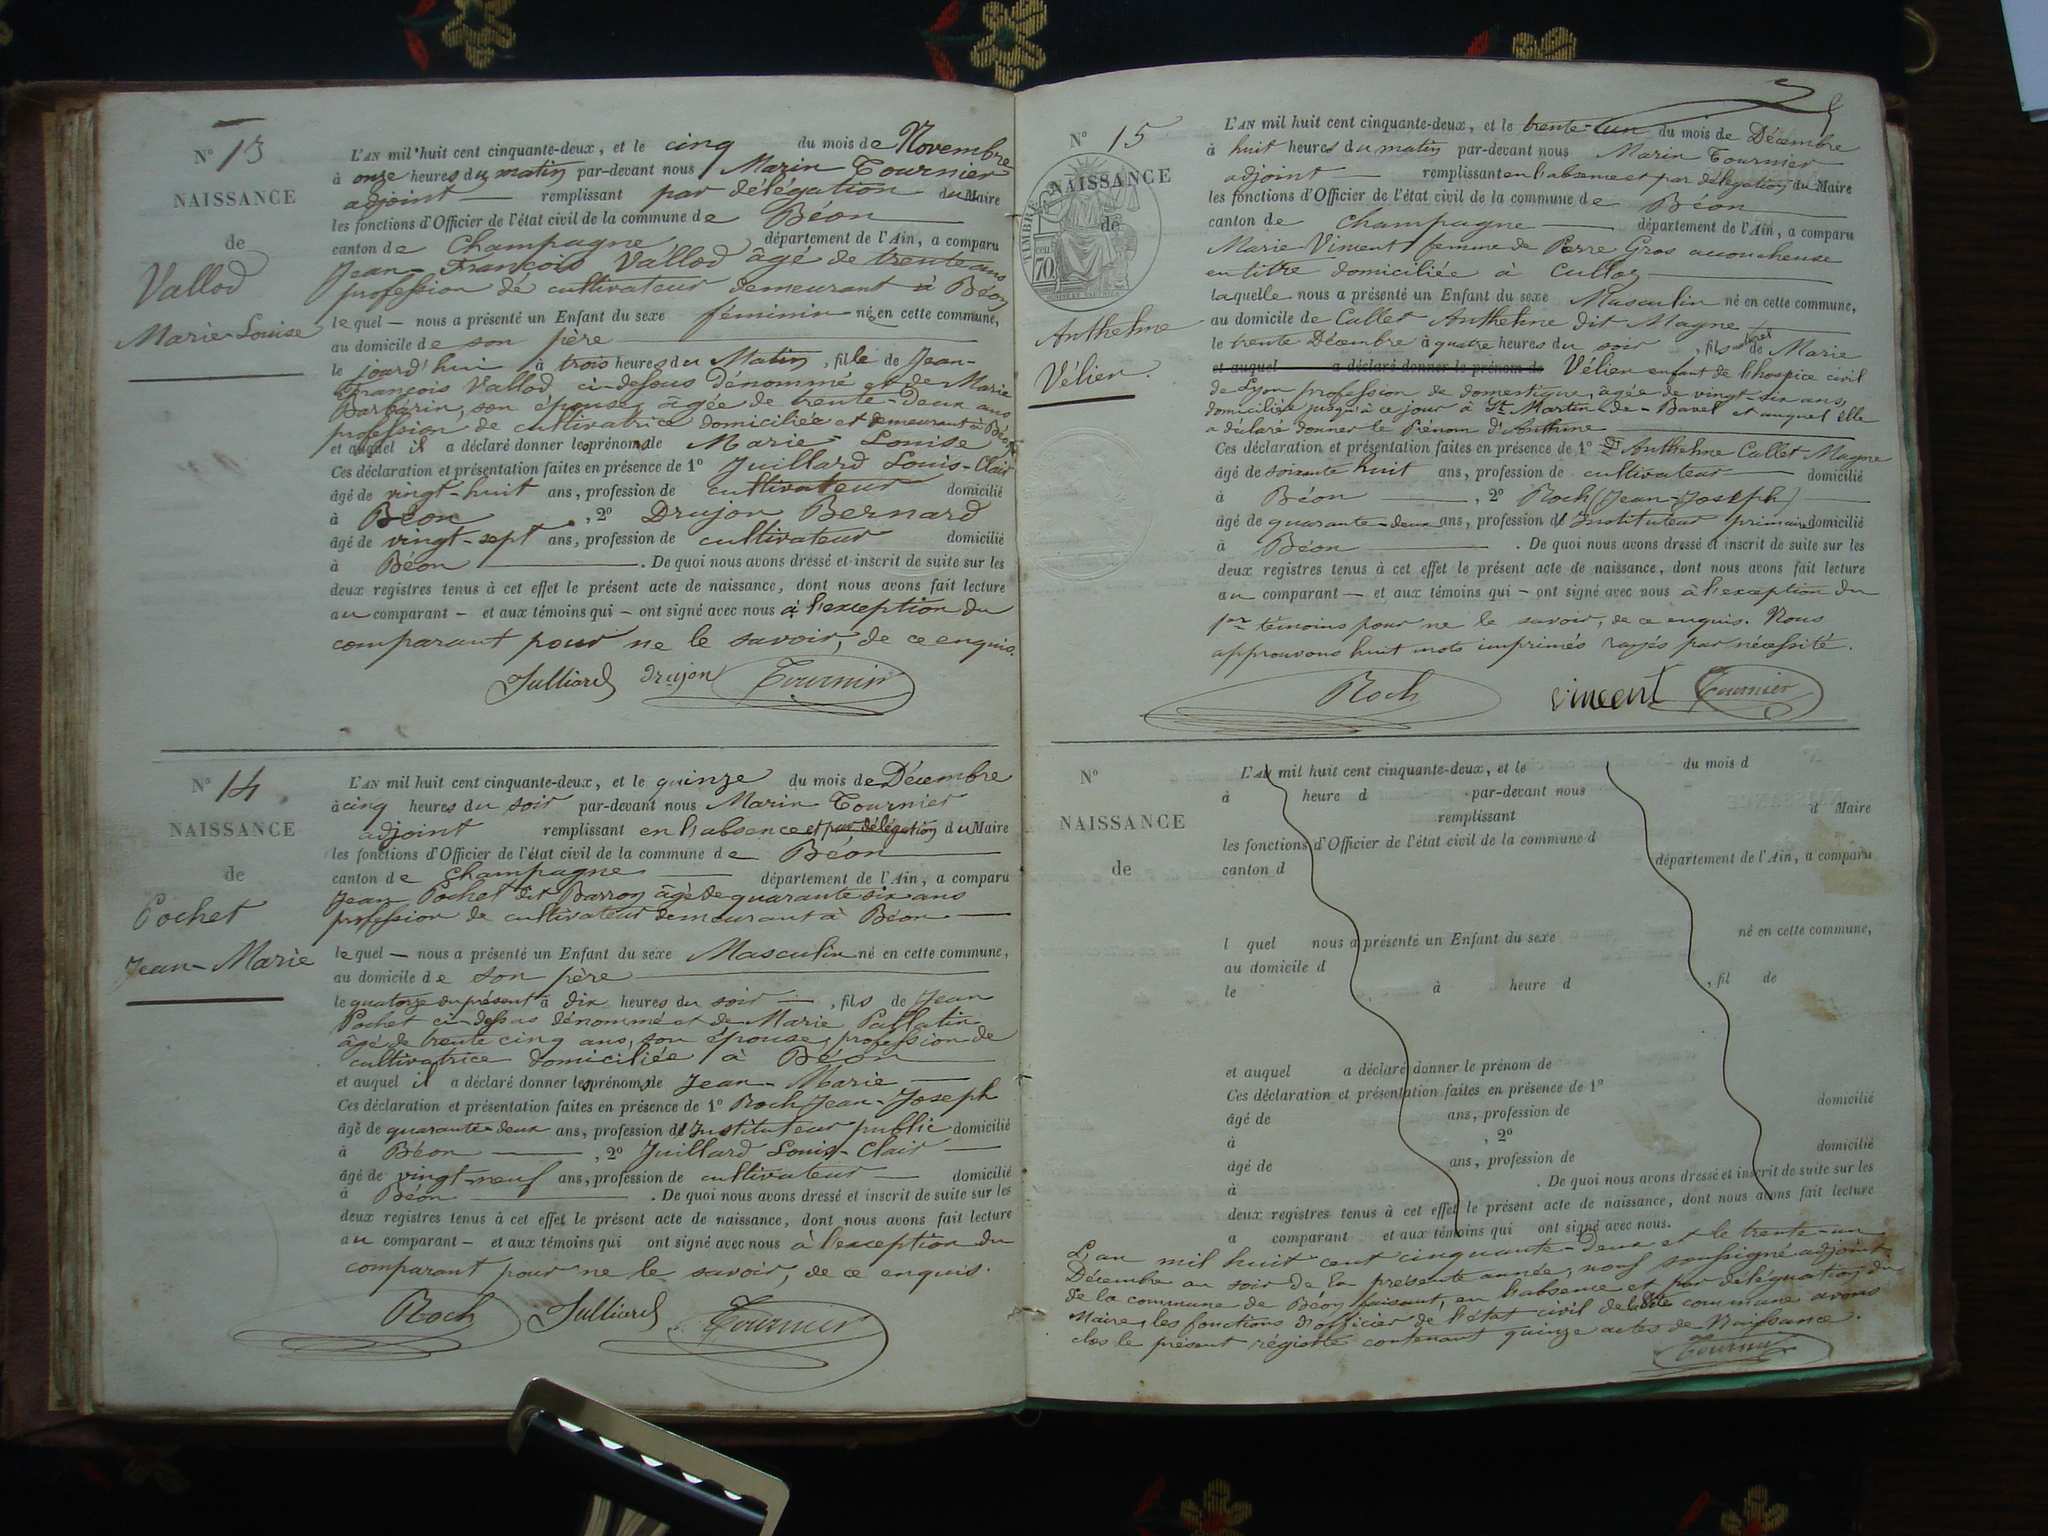 N° 13
NAISSANCE
de
Vallod
Marie-Louise
L'AN mil huit cent cinquante-deux, et le cinq du mois de Novembre
à onze heures du matin par-devant nous Marin Tournier
adjoint remplissant par délégation du Maire
les fonctions d'Officier de l'état civil de la commune de Béon
canton de Champagne département de l'Ain, a comparu
Jean-François Vallod âgé de trente ans
profession de cultivateur demeurant à Béon
lequel nous a présenté un Enfant du sexe féminin née en cette commune,
au domicile de son père
le jourd'hui à trois heures du Matin, fille de Jean-
François Vallod ci-dessus dénommé et de Marie
Barbarin, son épouse, âgée de trente-deux ans
profession de cultivatrice domiciliée et demeurant à Béon
et auquel il a déclaré donner les prénoms de Marie-Louise
Ces déclaration et présentation faites en présence de 1° Juillard Louis-Clair
âgé de vingt-huit ans, profession de cultivateur domicilié
à Béon, 2° Drujon Bernard
âgé de vingt-sept ans, profession de cultivateur domicilié
à Béon. De quoi nous avons dressé et inscrit de suite sur les
deux registres tenus à cet effet le présent acte de naissance, dont nous avons fait lecture
au comparant et aux témoins qui ont signé avec nous à l'exception du
comparant pour ne le savoir, de ce enquis.
Julliard Drujon Tournier
N° 14
NAISSANCE
de
Pochet
Jean-Marie
L'AN mil huit cent cinquante-deux, et le quinze du mois de Décembre
à cinq heures du soir par-devant nous Marin Tournier
adjoint remplissant en l'absence et par délégation du Maire
les fonctions d'Officier de l'état civil de la commune de Béon
canton de Champagne département de l'Ain, a comparu
Jean Pochet dit Barron âgé de quarante six ans
profession de cultivateur demeurant à Béon
lequel nous a présenté un Enfant du sexe Masculin né en cette commune,
au domicile de son père
le quatorze du présent à dix heures du soir, fils de Jean
Pochet ci-dessus dénommé et de Marie Pallatin
âgé de trente cinq ans, son épouse, profession de
cultivatrice domiciliée à Béon
et auquel il a déclaré donner les prénoms de Jean-Marie
Ces déclaration et présentation faites en présence de 1° Roch Jean-Joseph
âgé de quarante-deux ans, profession d'Instituteur public domicilié
à Béon, 2° Juillard Louis-Clair
âgé de vingt-neuf ans, profession de cultivateur domicilié
à Béon. De quoi nous avons dressé et inscrit de suite sur les
deux registres tenus à cet effet le présent acte de naissance, dont nous avons fait lecture
au comparant et aux témoins qui ont signé avec nous à l'exception du
comparant pour ne le savoir, de ce enquis.
Roch Julliard Tournier
N° 15
NAISSANCE
de
TIMBRE
70
Anthelme
Vélier.
L'AN mil huit cent cinquante-deux, et le trente-un du mois de Décembre
à huit heures du matin par-devant nous Marin Tournier
adjoint remplissant en l'absence et par délégation du Maire
les fonctions d'Officier de l'état civil de la commune de Béon
canton de Champagne département de l'Ain, a comparu
Marie Vincent femme de Pierre Gros accoucheuse
en titre domiciliée à Culloz
laquelle nous a présenté un Enfant du sexe Masculin né en cette commune,
au domicile de Callet Anthelme dit Magne
le trente Décembre à quatre heures du soir, fils naturel de Marie
et auquel a déclaré donner le prénom de Vélier enfant de l'hospice civil
de Lyon profession de domestique, âgée de vingt six ans,
domiciliée jusqu'à ce jour à St Martin-de-Bavel et auquel elle
a déclaré donner le Prénom d'Anthme
Ces déclaration et présentation faites en présence de 1° Dt Anthelme Callet Magne
âgé de soixante huit ans, profession de cultivateur domicilié
à Béon, 2° Roch (Jean-Joseph)
âgé de quarante-deux ans, profession d'Instituteur primaire domicilié
à Béon. De quoi nous avons dressé et inscrit de suite sur les
deux registres tenus à cet effet le présent acte de naissance, dont nous avons fait lecture
au comparant et aux témoins qui ont signé avec nous à l'exception du
1er témoins pour ne le savoir, de ce enquis. Nous
approuvons huit mots imprimés rayés par nécessité.
Roch vincent Tournier
N°
NAISSANCE
de
L'AN mil huit cent cinquante-deux, et le du mois d
à heure d par-devant nous
remplissant d Maire
les fonctions d'Officier de l'état civil de la commune d
canton d département de l'Ain, a comparu
l quel nous a présenté un Enfant du sexe né en cette commune,
au domicile d
le à heure d, fil de
et auquel a déclaré donner le prénom de
Ces déclaration et présentation faites en présence de 1°
âgé de ans, profession de domicilié
à, 2°
âgé de ans, profession de domicilié
à. De quoi nous avons dressé et inscrit de suite sur les
deux registres tenus à cet effet le présent acte de naissance, dont nous avons fait lecture
a comparant et aux témoins qui ont signé avec nous.
L'an mil huit cent cinquante-deux et le trente-un
Décembre au soir de la présente année, nous soussigné adjoint
de la commune de Béon faisant, en l'absence et par déléguation du
Maire, les fonctions d'officier de l'état civil de ladite commune avons
clos le présent régistre contenant quinze actes de Naissance.
Tournier